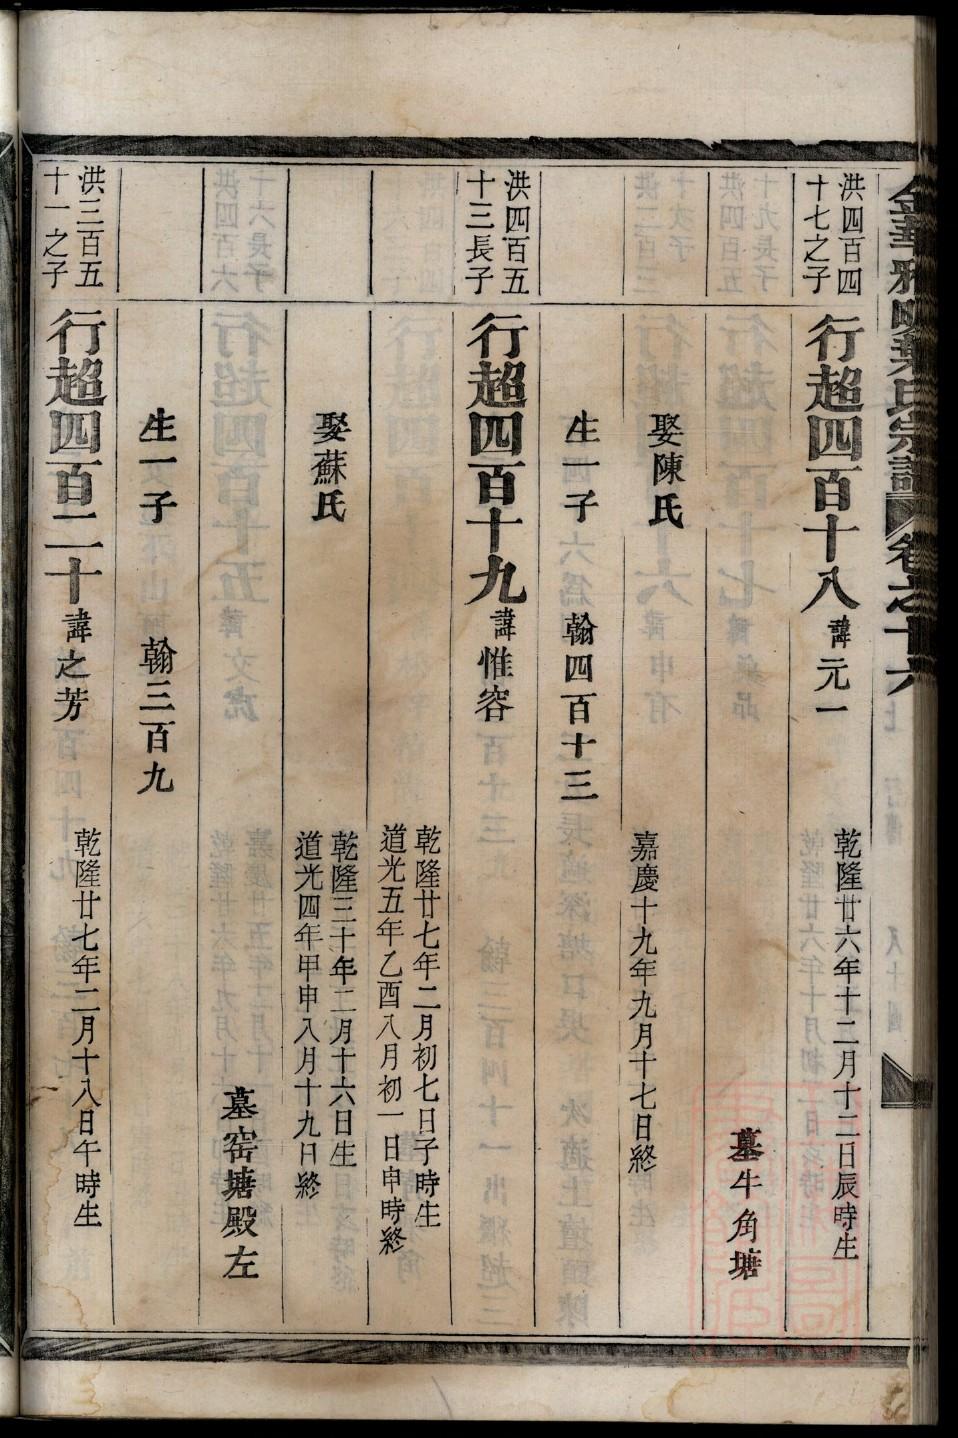 金華雅畈葉氏宗譜 卷之十六
洪四百四
十七之子
行超四百十八 諱元一
乾隆廿六年十二月十二日辰時生
墓牛角塘
娶陳氏
嘉慶十九年九月十七日終
生一子 翰四百十三
洪四百五
十三長子
行超四百十九 諱惟容
乾隆廿七年二月初七日子時生
道光五年乙酉八月初一日申時終
娶蘇氏
乾隆三十年二月十六日生
道光四年甲申八月十九日終
墓窑塘殿左
生一子 翰三百九
洪三百五
十一之子
行超四百二十 諱之芳
乾隆廿七年二月十八日午時生